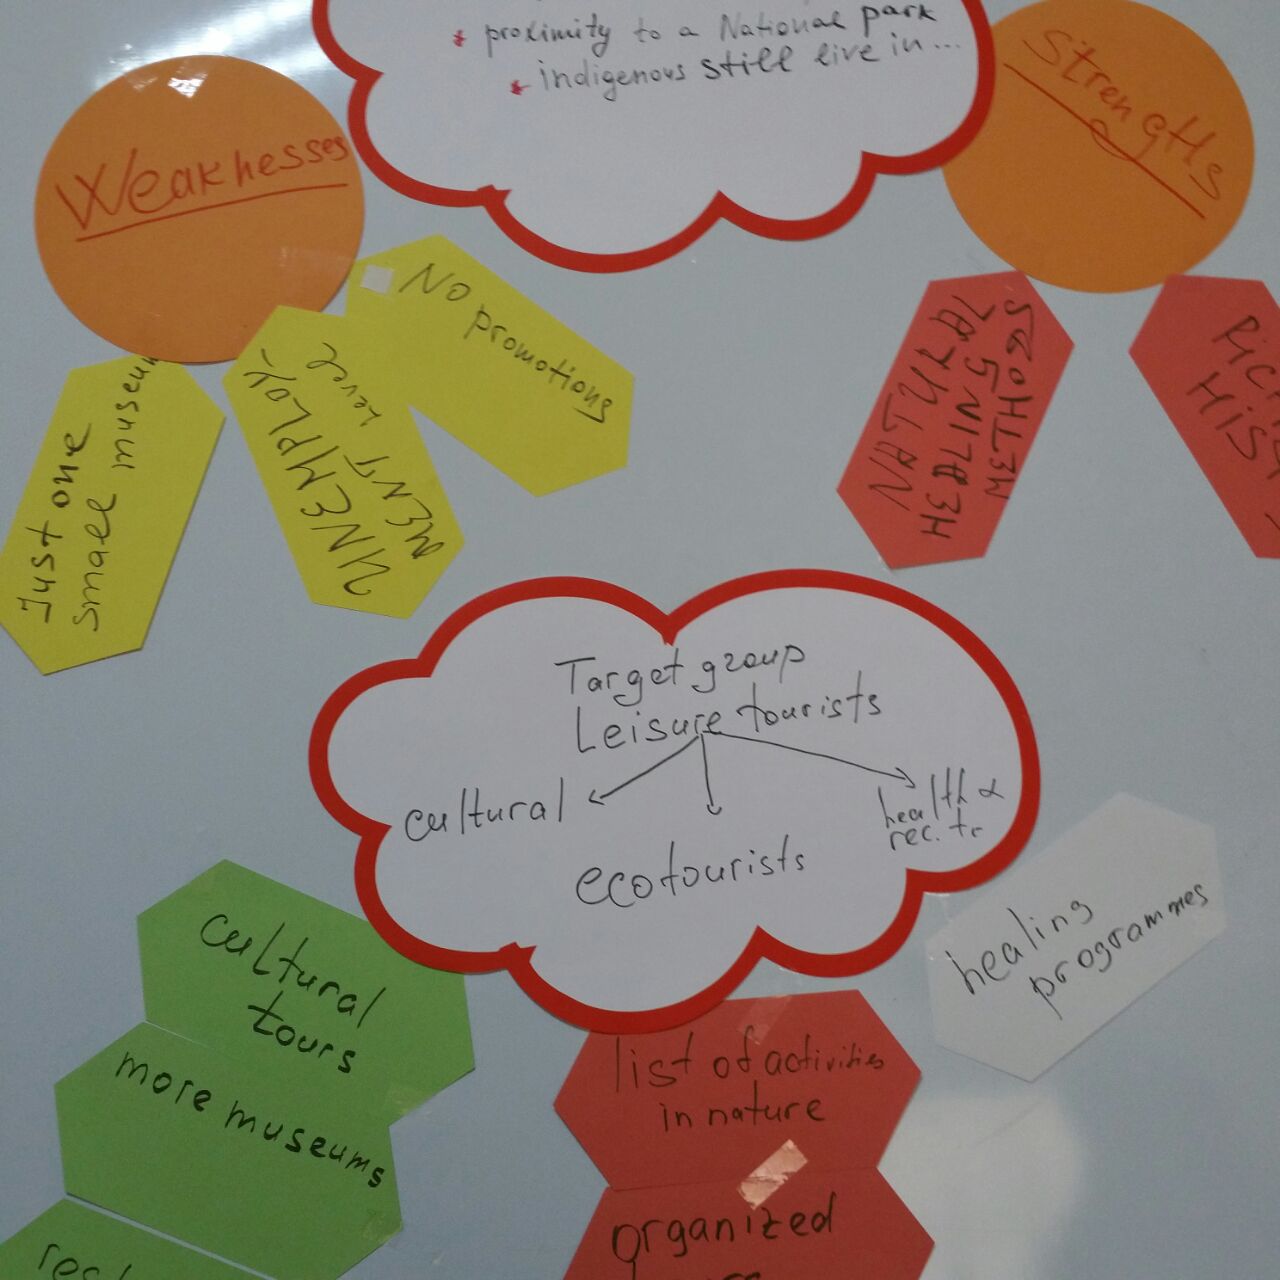 * proximity to a National park
* indigenous still live in...
Weaknesses
Strengths
No
promotions
UNEMPLOY-
MENT
Level
Just one
small museum
NATURAL
HEALING
METHODS
HIS
Target group
Leisure tourists
cultural
ecotourists
health &
rec.
healing
programmes
cultural
tours
more museums
list of activities
in nature
organized